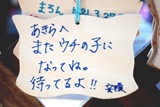 まろん H21.3.27
あきらへ
またウチの子に
なってね。
待ってるよ!!